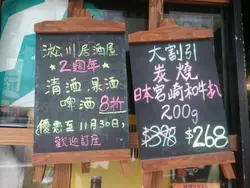 淞川居酒屋
2週年
清酒果酒
啤酒8折
優惠至11月30日,
歡迎訂座
大割引
炭燒
日本宮崎和牛扒
200g
$398 $268